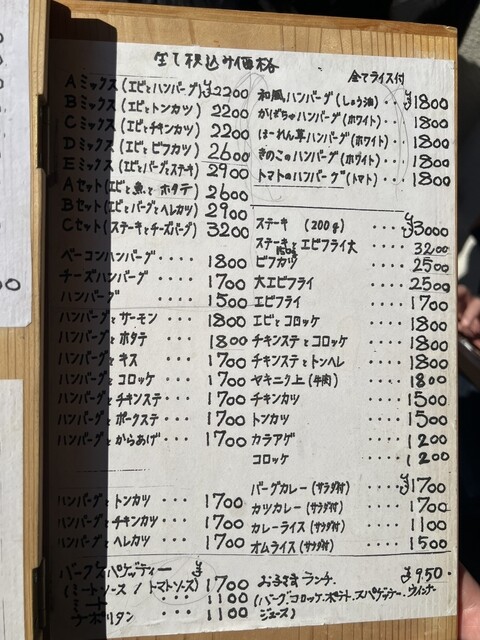 全て税込み価格
全てライス付
Aミックス(エビとハンバーグ) ¥2200
Bミックス(エビとトンカツ) 2200
Cミックス(エビとチキンカツ) 2200
Dミックス(エビとビフカツ) 2600
Eミックス(エビとバーグとステーキ) 2900
Aセット(エビと魚とホタテ) 2600
Bセット(エビとバーグとヘレカツ) 2900
Cセット(ステーキとチーズバーグ) 3200
ベーコンハンバーグ 1800
チーズハンバーグ 1700
ハンバーグ ・・・ 1500
ハンバーグとサーモン ・・・ 1800
ハンバーグとホタテ ・・・ 1800
ハンバーグとキス ・・・ 1700
ハンバーグとコロッケ ・・・ 1700
ハンバーグとチキンステ ・・・ 1700
ハンバーグとポークステ ・・・ 1700
ハンバーグとからあげ ・・・ 1700
ハンバーグとトンカツ ・・・ 1700
ハンバーグとチキンカツ ・・・ 1700
ハンバーグとヘレカツ ・・・ 1700
バーグスパゲッティー ¥
(ミートソース/トマトソース) 1700
ミート 1100
ナポリタン ・・・ 1100
和風ハンバーグ(しょう油) ・・ ¥1800
かぼちゃハンバーグ(ホワイト) ・・ 1800
ほーれん草ハンバーグ(ホワイト) ・・ 1800
きのこのハンバーグ(ホワイト) ・・ 1800
トマトのハンバーグ(トマト) ・・ 1800
ステーキ (200g) ・・・・ ¥3000
ステーキとエビフライ大 ・・ 3200
150g
ビフカツ ・・・・ 2500
大エビフライ ・・・・ 2500
エビフライ ・・・・ 1700
エビとコロッケ ・・・・ 1800
チキンステとコロッケ ・・・・ 1800
チキンステとトンヘレ ・・・・ 1800
ヤキニク上(牛肉) ・・・・ 1800
チキンカツ ・・・・ 1500
トンカツ ・・・・ 1500
カラアゲ ・・・・ 1200
コロッケ ・・・・ 1200
バーグカレー(サラダ付) ・・・・ ¥1700
カツカレー(サラダ付) ・・・・ 1700
カレーライス(サラダ付) ・・・・ 1100
オムライス(サラダ付) ・・・・ 1500
お子さまランチ. ¥950.
(バーグ.コロッケ.ポテト.スパゲッテー.ウィンナー
ジュース)